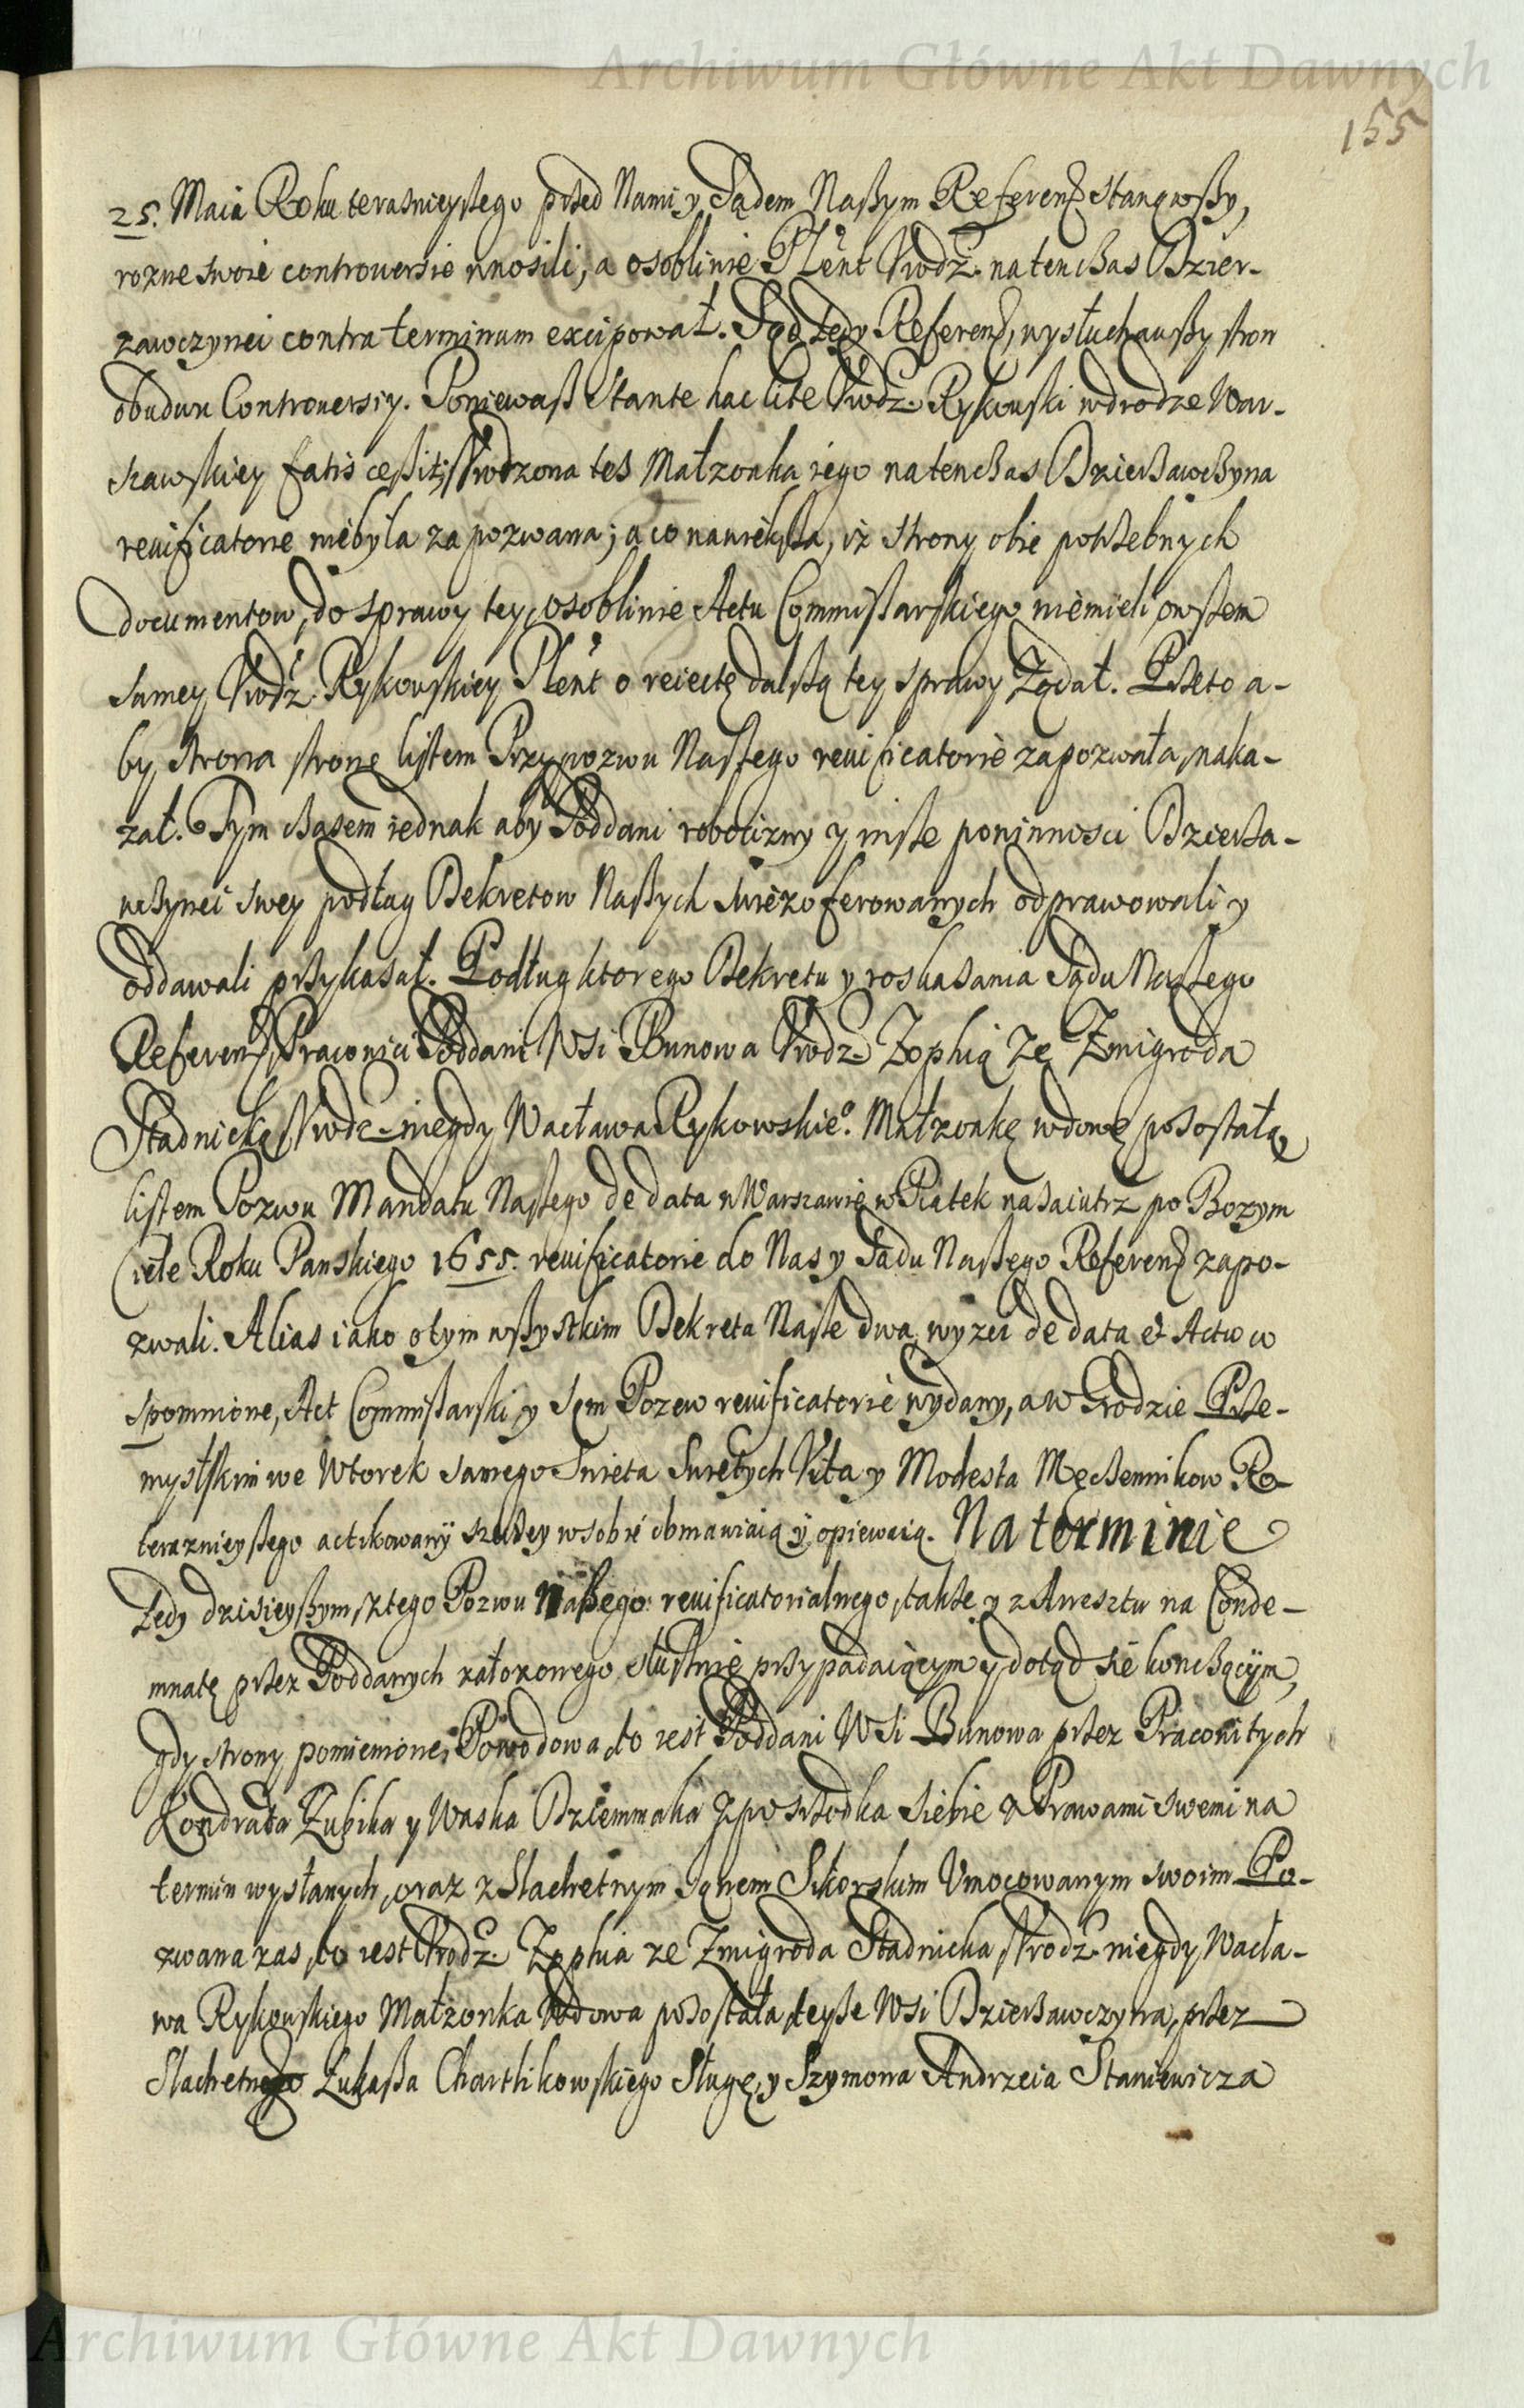 Archiwum Główne Akt Dawnych
155
25. Maia Roku terasnieyszego przed Nami y Sądem Naszym Referen. stanąwszy,
rozne swoie controuersie wnosili, a osobliwie Plent Vrodz. natenczas Dzier-
zawczynei contra terminum excipował. Sąd tedy Referen. wysłuchawszy stron
obudwu Controuersiy. Poniewasz stante hac lite Vrodz. Rykowski wdrodze War-
szawskiey fatis cessit, Vrodzona tes Małzonka iego natenczas Dzierzawczyna
reuificatorie niebyla zapozwana; a co nawiększa, iż strony obie potrzebnych
documentow, do sprawy tey, osobliwie Actu Commissarskiego niemieli, owszem
samey Vrodz. Rykowskiey Plent o reiectę dalszą tey sprawy Ządał. Przeto a-
by strona stronę listem Przypozwu Naszego reuificatorie zapozwała, naka-
zał. Tym czasem iednak aby Poddani robocizny y insze powinnosci Dzierza-
wczynei swey podług Dekretow Naszych swiezo ferowanych odprawowali y
oddawali przykasał. Podług ktorego Dekretu y roskasania Sądu Naszego
Referen. Pracowici Poddani Wsi Bunowa Vrodz. Zophią Ze Zmigroda
Stadnicką Vrodz. niegdy Wacława Rykowskieo. Małzonkę wdowę posostałą
listem Pozwu Mandatu Naszego de data w Warszawie w Piątek nasaiutrz po Bozym
Ciele Roku Panskiego 1655. reuificatorie do Nas y Sadu Naszego Referen. zapo-
zwali. Alias iako o tym wszystkim Dekreta Nasze dwa, wyzei de data et Actu w
spomnione, Act Commissarski y sęm Pozew reuificatorie wydany, a w Grodzie Prze-
mysłskim we Wtorek samego Swieta Swietych Vita y Modesta Męczennikow Ro-
terazniejszego actikowany szerzey w sobie obmawiaią y opiewaią. Na terminie
Tedy dzisieyszym, z tego Pozwu Naszego reuificatorialnego, takze y z Aresztu na Conde-
mnatę przez Poddanych załozonego słusznie przypadaiącym y dotąd sie konczącym,
gdy strony pomienione, Powodowa, to iest Poddani Wsi Bunowa przez Pracowitych
Kondrata Zubika y Waska Dziemmaka z posrzodka siebie z Prawami swemi na
termin wysłanych, oraz z Slachetnym Janem Sikorskim Vmocowanym swoim Po-
zwana zas, to iest Vrodz. Zophia ze Zmigroda Stadnicka, Vrodz. niegdy Wacła-
wa Rykowskiego Małżonka Wdowa posostała, teysze Wsi Dzierzawczyna, przez
Slachetnego Łukasza Charthikowskiego Sługę, y Szymona Andrzeia Staniewicza
Archiwum Główne Akt Dawnych